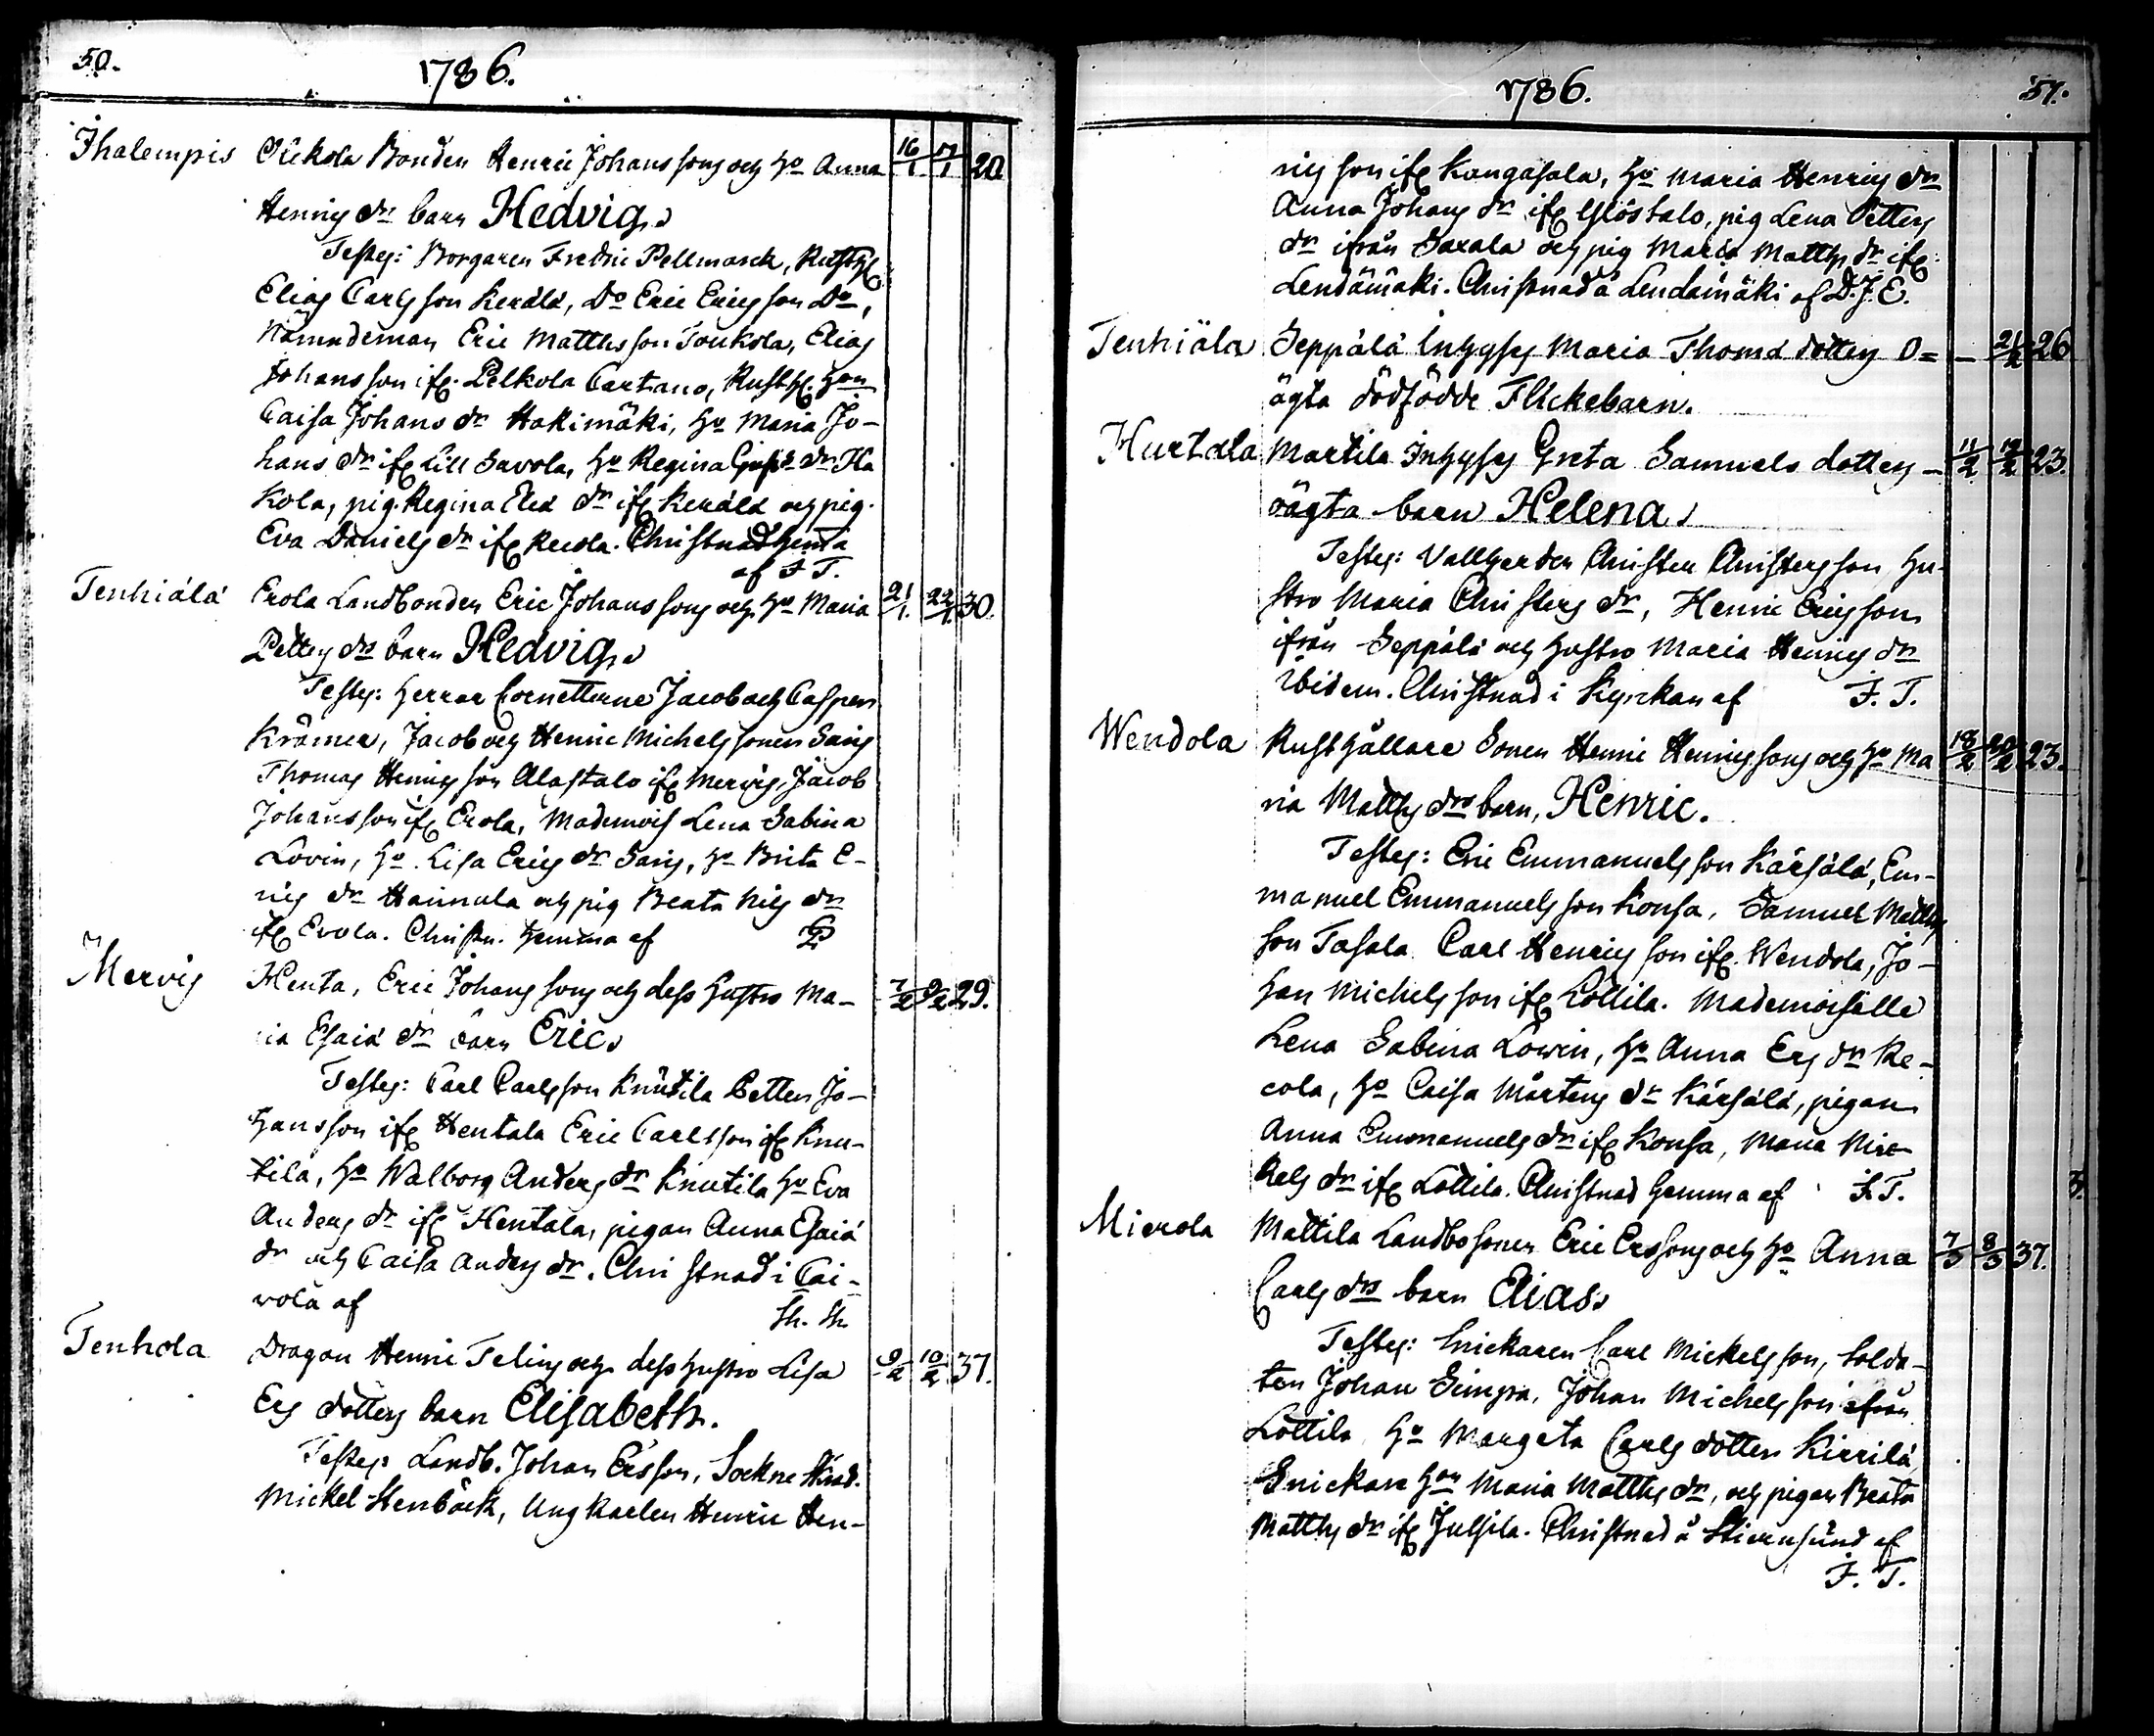 50.
1786.
Ihalempis Olekola Bonden Henric Johanssons och ho Anna 16/1 17/1 20
Henrics dr barn Hedvig.
Testes: Borgaren Fredric Pellmarck, Rusth:
Elias Carlsson Kerälä, Do Eric Ericsson Do,
Nämndeman Eric Matthsson Toukola, Elias
Johansson ifr. Pelkola Cartano, Rusth. hon
Caisa Johans dr Hakimäki, ho Maria Jo-
hans dr ifr Lill Savola, ho Regina dr Ha
kola, pig. Regina Eliæ dr ifr Kerälä och pig.
Eva Daniels dr ifr Recola. Christnad hema
af F T.
Tenhiälä Erola Landbonden Eric Johanssons och ho Maria 21/1. 22/1. 30.
Petters drs barn Hedvig.
Testes: Herrar Cornetterne Jacob och Casper
Krämer, Jacob och Henric Michelssoner Saris
Thomas Henricsson Alastalo ifr Mervis, Jacob
Johansson ifr Erola, Mademois Lena Sabina
Lovin, ho Lisa Erics dr Saris, ho Brita E-
rics dr Haimala och pig Beata Nils dr
ifr Evola. Christn. hemma af P
Mervis Henta, Eric Johans sons och dess hustro Ma- 7/2 9/2 29.
ria Esaiæ dr barn Eric.
Testes: Carl Carlsson Knutila Petter Jo-
hansson ifr Hentala Eric Carlsson ifr Knu-
tila, ho Walborg Anders dr Knutila ho Eva
Anders dr ifr Hentala, pigan Anna Esaiæ
dr och Caisa Anders dr. Christnad i Cai-
vola af Sh. Sh.
Tenhola Dragon Henric Teling och dess hustro Lisa 9/2 10/2 37.
Ers dotters barn Elisabeth.
Testes: Landb. Johan Ersson, Sockne Skräd.
Mickel Stenbäck, Ung karlen Henric Hen-
1786.
51.
rics son ifr Kangasala, ho Maria Henrics dr
Anna Johans dr ifr Ylöstalo, pig Lena Petters
dr ifrån Saxala och pig Maria Matths dr ifr:
Lendämäki. Christnad å Lendämäki af D. J. E.
Tenhiälä Seppälä Inhyses Maria Thomæ dotters O= — 21/2 26
ägta dödfödde Flickebarn.
Hurtala Martila Inhyses Greta Samuels dotters - 11/2 12/2 23.
oägta barn Helena.
Testes: Vallherden Christer Christersson, Hu-
stro Maria Christers dr, Henric Ericsson
ifrån Seppälä och hustro Maria Henrics dr
ibidem. Christnad i Kyrckan af F. T.
Wendola Rusthållare Sonen Henric Henrics sons och ho Ma 18/2 20/2 23.
ria Matths drs barn, Henric.
Testes: Eric Emmanuels son Kärsälä, Em-
manuel Emmanuels son Konsa, Samuel Matths
son Tasala Carl Henrics son ifr. Wendola, Jo-
han Michels son ifr Lottila. Mademoiselle
Lena Sabina Lowin, ho Anna Ers dr Re-
cola, ho Caisa Mårtens dr Kärsälä, pigan
Anna Emmanuels dr ifr Konsa, Maria Mic
kels dr ifr Lottila. Christnad hemma af F. T.
Mierola Mattila Landbosonen Eric Erssons och ho Anna 7/3 8/3 37.
Carls drs barn Elias.
Testes: Snickaren Carl Mickelsson, Solda-
ten Johan Simpa, Johan Michels son ifrån
Lottila, ho Margeta Carls dotter Kirrilä
Snickare hon Maria Matths dr, och pigan Beata
Matths dr ifr Jutsila. Christnad å Stiernsund af
F. T.